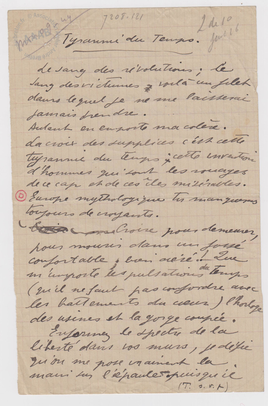 7208.171
2 de 1°
Tyrannie du Temps.
Le sang des révolutions ; le
sang des victimes, voilà un filet
dans lequel je ne me laisserai
jamais prendre.
Autant en emporte ma colère.
La croix des supplices c'est cette
tyrannie du temps ; cette invention
d'hommes qui sont les rouages
de ce cap et de ces îles misérables.
Europe mythologique tu manqueras
toujours de croyants.
Croire pour demeurer,
pour mourir dans un fossé
confortable, bien aéré. Que
m'importe les pulsations du temps
(qu'il ne faut pas confondre avec
les battements du cœur) l'horloge
des usines et la gorge coupée.
Enfermez le spectre de la
liberté dans vos murs, je défie
qu'on me pose vraiment la
main sur l'épaule puisqu'il
(T. S. V. P.)